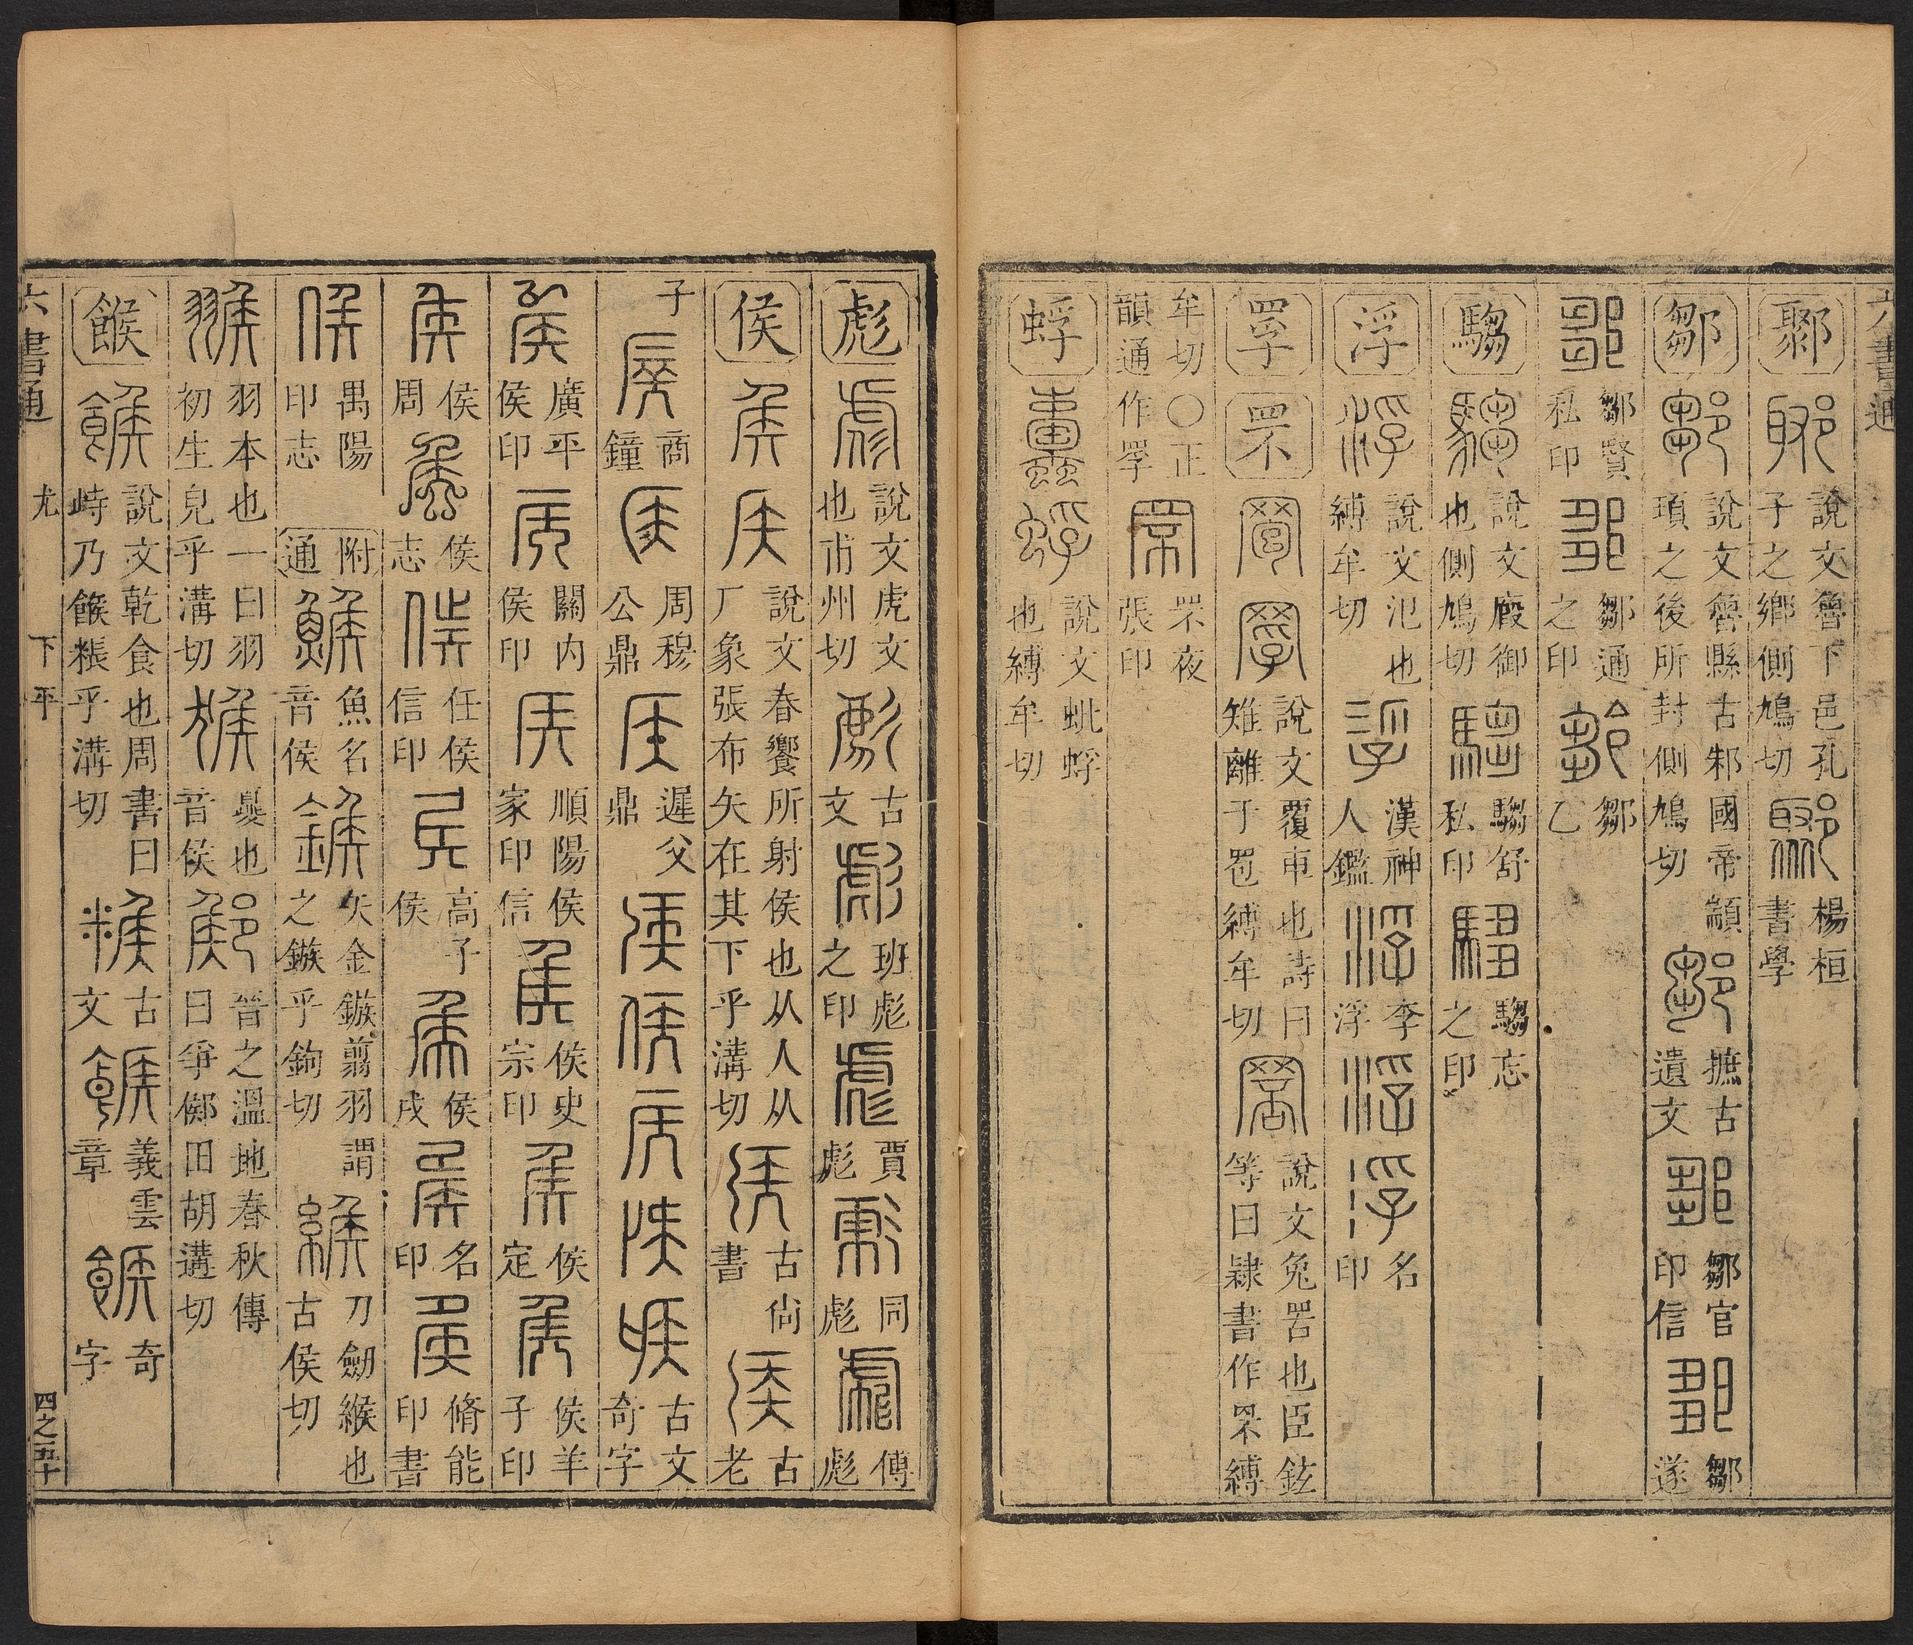 六書通
郰 說文魯下邑孔子之鄉側鳩切 楊桓書學
鄒 說文魯縣古邾國帝顓頊之後所封側鳩切 摭古遺文 鄒官印信 鄒遂
鄒賢私印 鄒通之印 鄒乙
騶 說文廄御也側鳩切 騶舒私印 騶忘之印
浮 說文氾也縛牟切 漢神人鑑 李浮 名印
罦 罘 說文覆車也詩曰雉離于罦縛牟切 說文兔罟也臣鉉等曰隸書作罘縛
牟切〇正韻通作罦 罘夜張印
蜉 說文蚍蜉也縛牟切
彪 說文虎文也甫州切 古文 班彪之印 賈彪 同彪 傅彪
侯 說文春饗所射侯也从人从厂象張布矢在其下乎溝切 古尚書 古老
子 商鐘 周穆公鼎 遲父鼎 古文奇字
廣平侯印 關內侯印 順陽侯家印信 侯史宗印 侯定 侯羊子印
侯周 侯志 任侯信印 高子侯 侯戎 名印 脩能印書
禺陽印志 附通 魚名音侯 矢金鏃翦羽謂之鏃乎鉤切 刀劒緱也古侯切
羽本也一曰羽初生皃乎溝切 音侯 晉之溫地春秋傳曰爭鄇田胡遘切
餱 說文乾食也周書曰峙乃餱粻乎溝切 古文 義雲章 奇字
六書通 尤 下平 四之五十